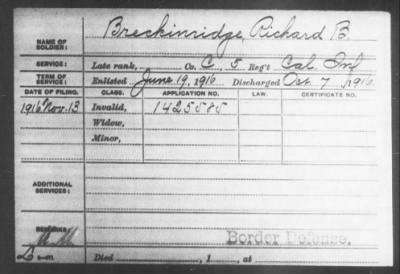 NAME OF SOLDIER: Breckinridge, Richard B
SERVICE: Late rank, Co. C, 5 Reg't Cal. Inf
TERM OF SERVICE: Enlisted June 19, 1916 Discharged Oct. 7, 1916
DATE OF FILING. CLASS. APPLICATION NO. LAW. CERTIFICATE NO.
1916 Nov. 13 Invalid, 1425585
Widow,
Minor,
ADDITIONAL SERVICES:
REMARKS: Border Defense.
Died , 1 , at